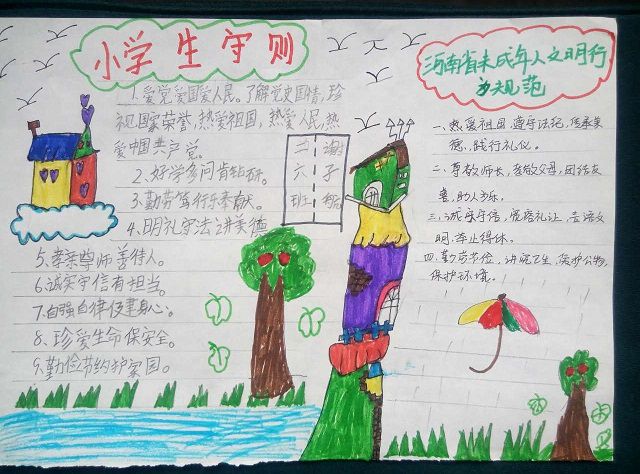 小学生守则
1.爱党爱国爱人民。了解党史国情,珍
视国家荣誉,热爱祖国,热爱人民,热
爱中国共产党。
2.好学多问肯钻研。
3.勤劳笃行乐奉献。
4.明礼守法讲美德
5.孝亲尊师善待人。
6.诚实守信有担当。
7.自强自律健身心。
8.珍爱生命保安全。
9.勤俭节约护家园。
二
六 子
班
河南省未成年人文明行
为规范
一、热爱祖国,遵守法纪,传承美
德,践行礼仪。
二、尊敬师长,孝敬父母,团结友
善,助人为乐,
三、诚实守信,谦让,言语文
明,举止得体,
四、勤劳节俭,讲究卫生,保护公物,
保护环境。